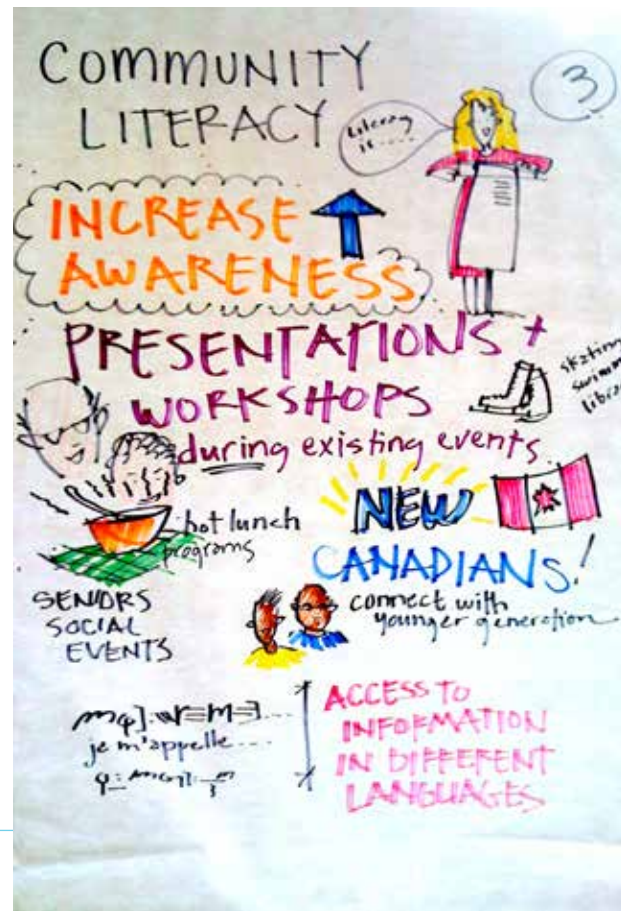 COMMUNITY
LITERACY
3
Literacy
is.....
INCREASE
AWARENESS
PRESENTATIONS +
WORKSHOPS
during existing events
hot lunch
programs
SENIORS
SOCIAL
EVENTS
NEW
CANADIANS!
connect with
younger generation
je m'appelle....
ACCESS TO
INFORMATION
IN DIFFERENT
LANGUAGES